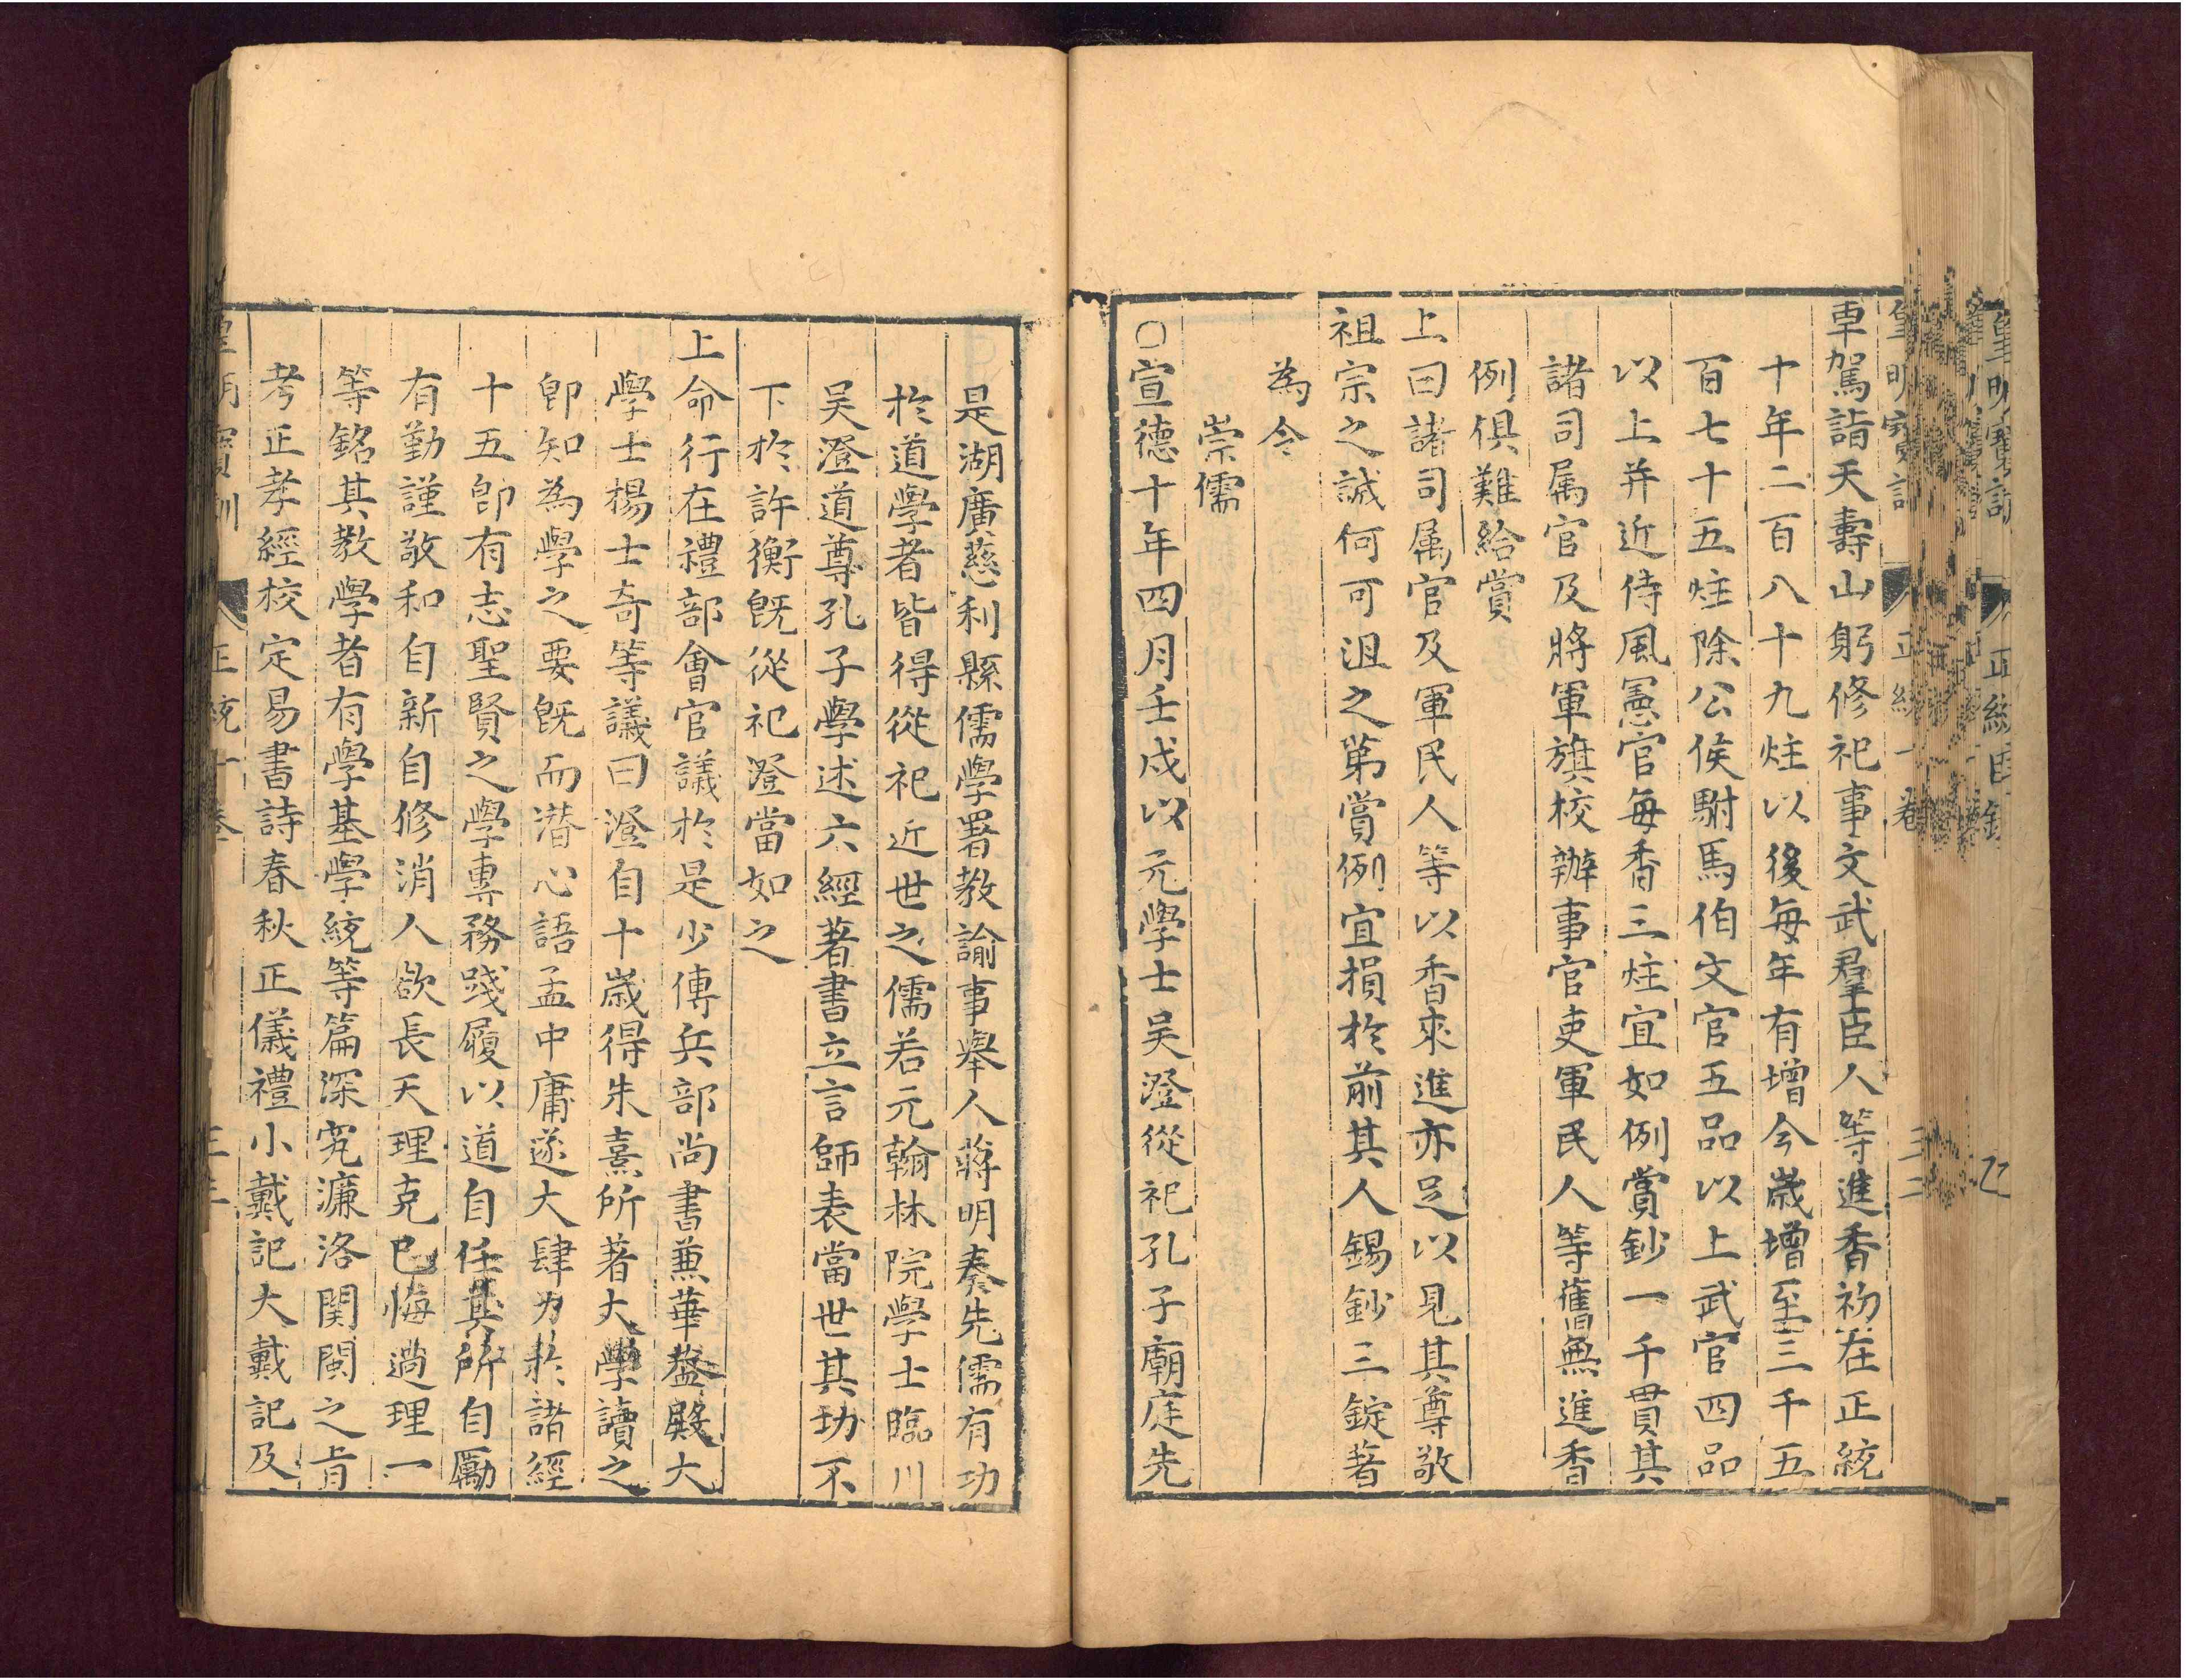 車駕詣天壽山躬修祀事文武羣臣人等進香初在正統
十年二百八十九炷以後每年有增今歲增至三千五
百七十五炷除公侯駙馬伯文官五品以上武官四品
以上并近侍風憲官每香三炷宜如例賞鈔一千貫其
諸司属官及將軍旗校辦事官吏軍民人等舊無進香
例俱難給賞
上曰諸司属官及軍民人等以香來進亦足以見其尊敬
祖宗之誠何可沮之第賞例宜損於前其人錫鈔三錠著
為令
崇儒
○宣德十年四月壬戌以元學士吴澄從祀孔子廟庭先
是湖廣慈利縣儒學署教諭事舉人蔣明奏先儒有功
於道學者皆得從祀近世之儒若元翰林院學士臨川
吴澄道尊孔子學述六經著書立言師表當世其功不
下於許衡既從祀澄當如之
上命行在禮部會官議於是少傅兵部尚書兼華蓋殿大
學士楊士奇等議曰澄自十歲得朱熹所著大學讀之
即知為學之要既而潜心語孟中庸遂大肆力於諸經
十五即有志聖賢之學專務踐履以道自任其所自勵
有勤謹敬和自新自修消人欲長天理克己悔過理一
等銘其教學者有學基學統等篇深究濂洛関閩之旨
考正孝經校定易書詩春秋正儀禮小戴記大戴記及
皇明寶訓 正統十卷